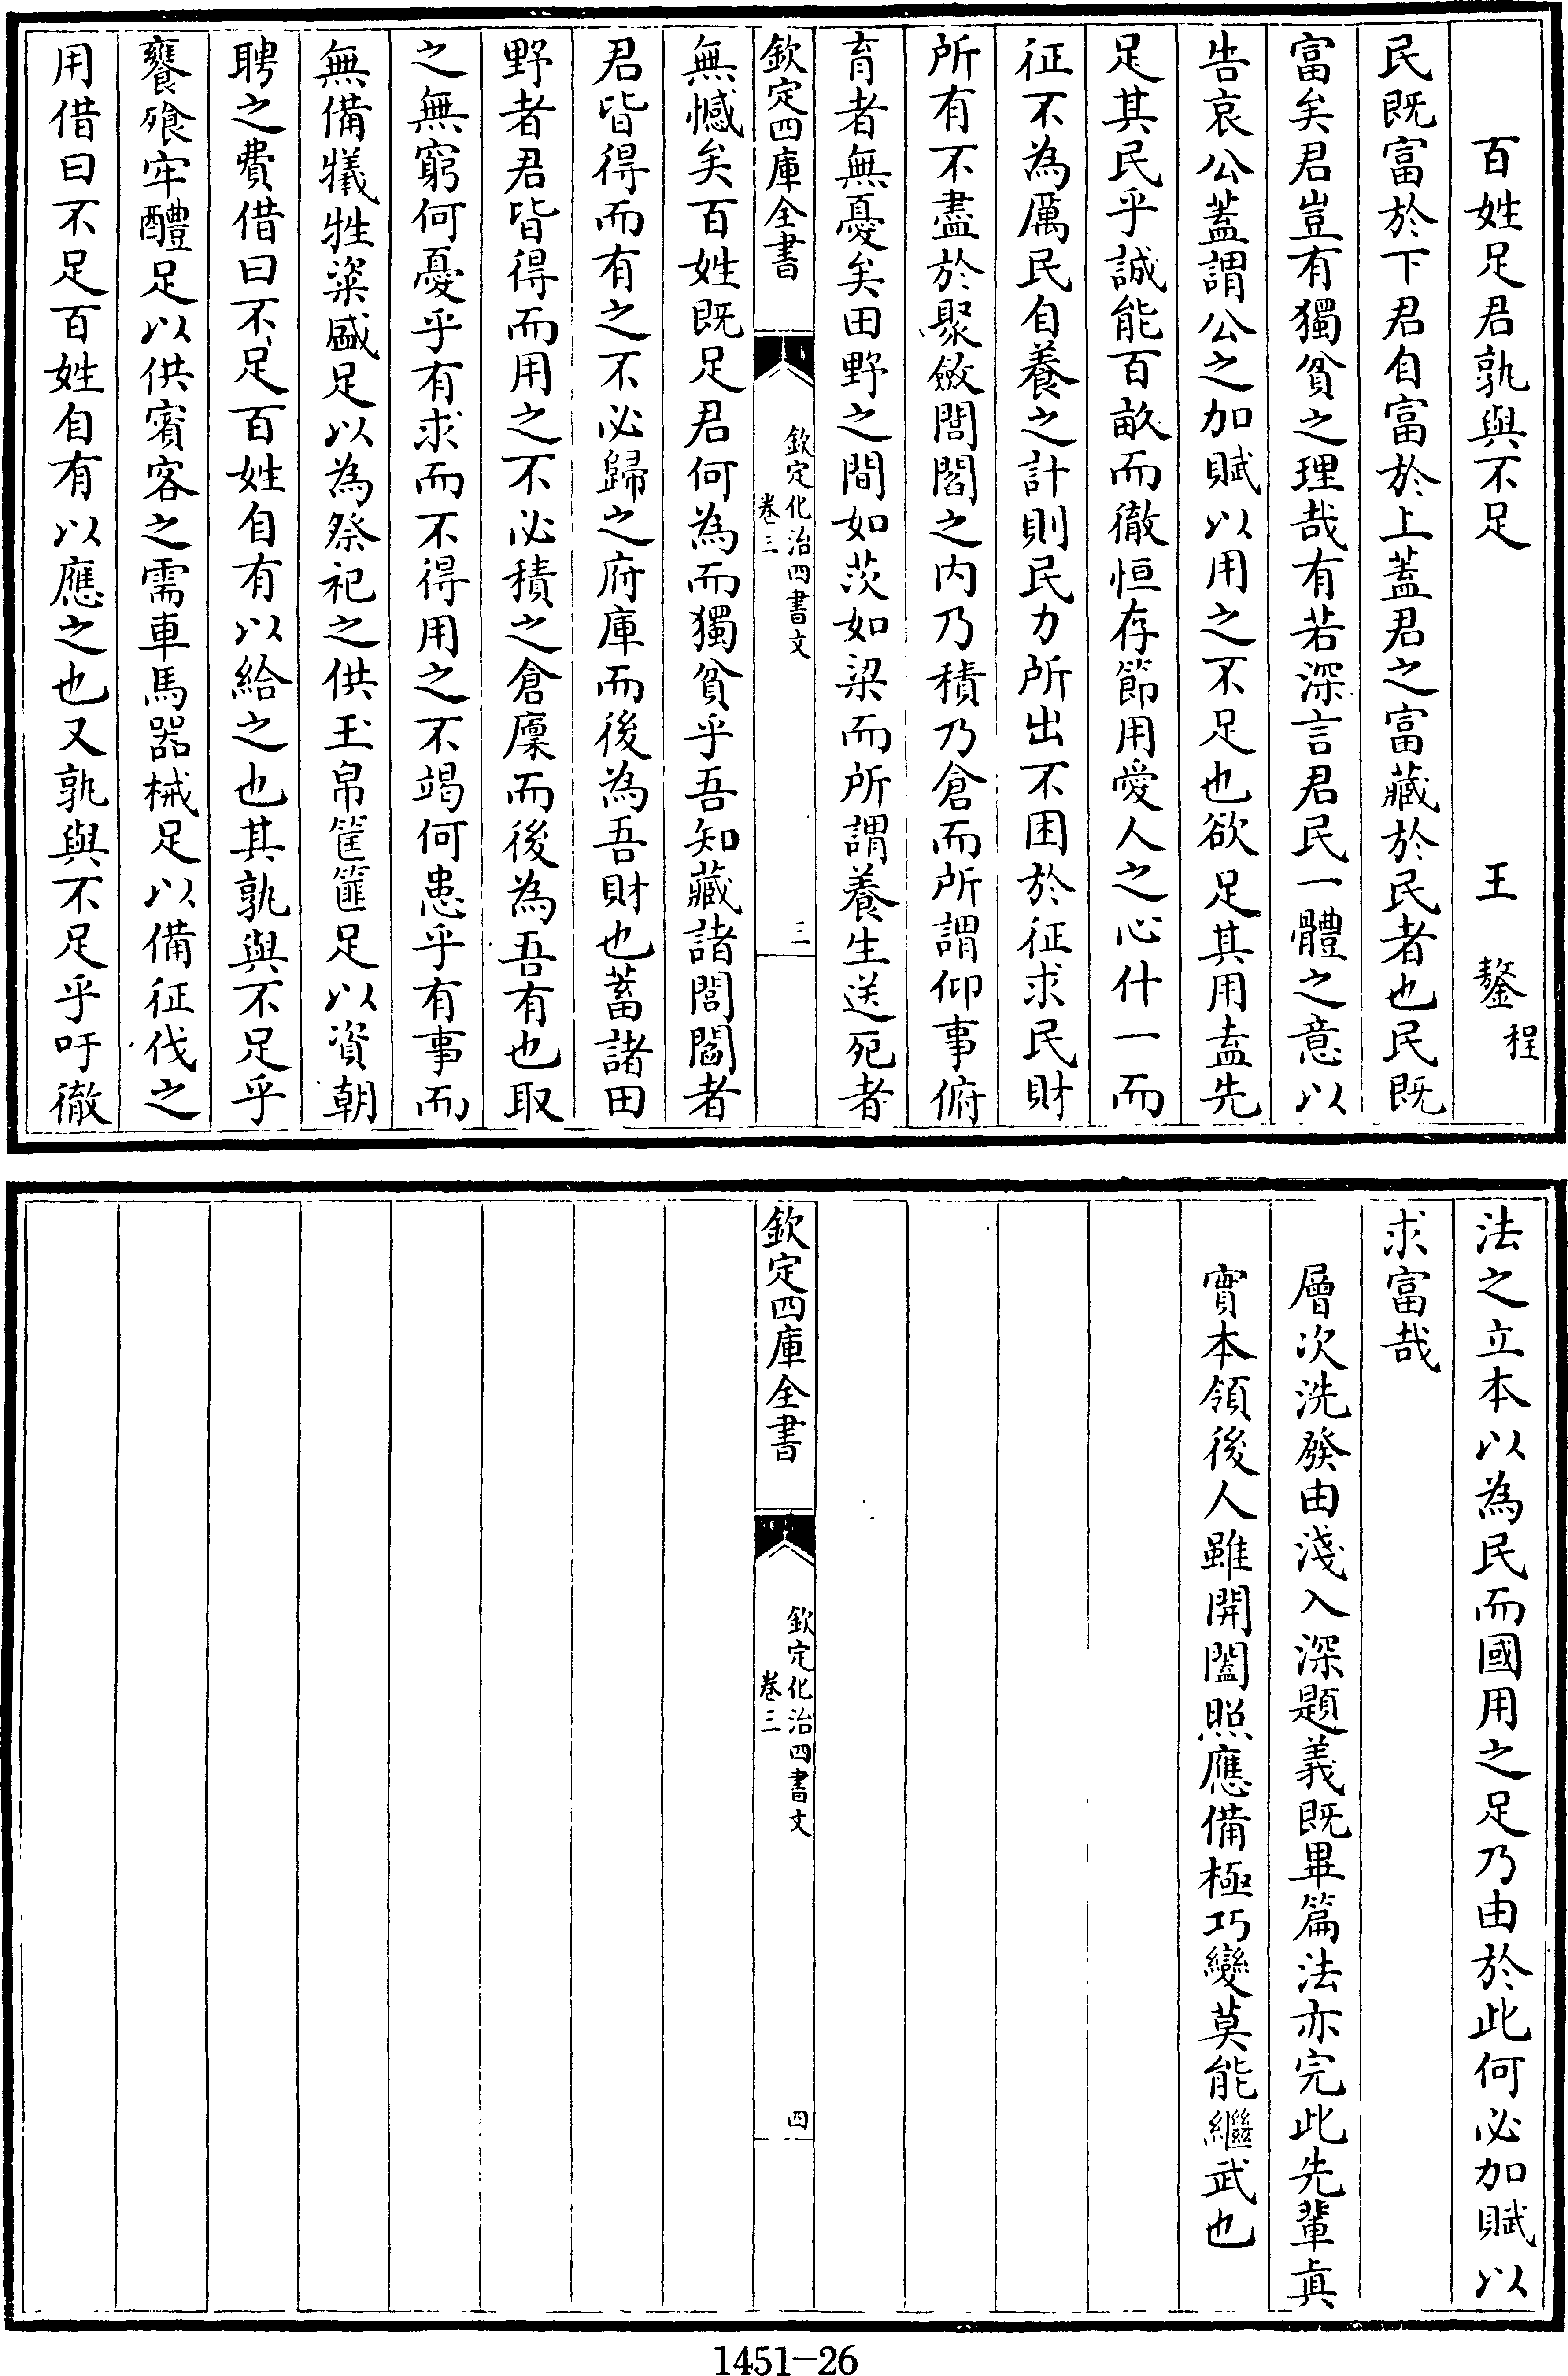 百姓足君孰與不足 王鏊程
民既富於下君自富於上蓋君之富藏於民者也民既
富矣君豈有獨貧之理哉有若深言君民一體之意以
告哀公蓋謂公之加賦以用之不足也欲足其用盍先
足其民乎誠能百畝而徹恒存節用愛人之心什一而
征不為厲民自養之計則民力所出不困於征求民財
所有不盡於聚斂閭閻之内乃積乃倉而所謂仰事俯
育者無憂矣田野之間如茨如梁而所謂養生送死者
欽定四庫全書
欽定化治四書文
卷三
三
無憾矣百姓既足君何為而獨貧乎吾知藏諸閭閻者
君皆得而有之不必歸之府庫而後為吾財也蓄諸田
野者君皆得而用之不必積之倉廩而後為吾有也取
之無窮何憂乎有求而不得用之不竭何患乎有事而
無備犠牲粢盛足以為祭祀之供玉帛筐篚足以資朝
聘之費借曰不足百姓自有以給之也其孰與不足乎
饔飧牢醴足以供賓客之需車馬器械足以備征伐之
用借曰不足百姓自有以應之也又孰與不足乎吁徹
法之立本以為民而國用之足乃由於此何必加賦以
求富哉
層次洗發由淺入深題義既畢篇法亦完此先輩真
實本領後人雖開闔照應備極巧變莫能繼武也
欽定四庫全書
欽定化治四書文
卷三
四
1451-26